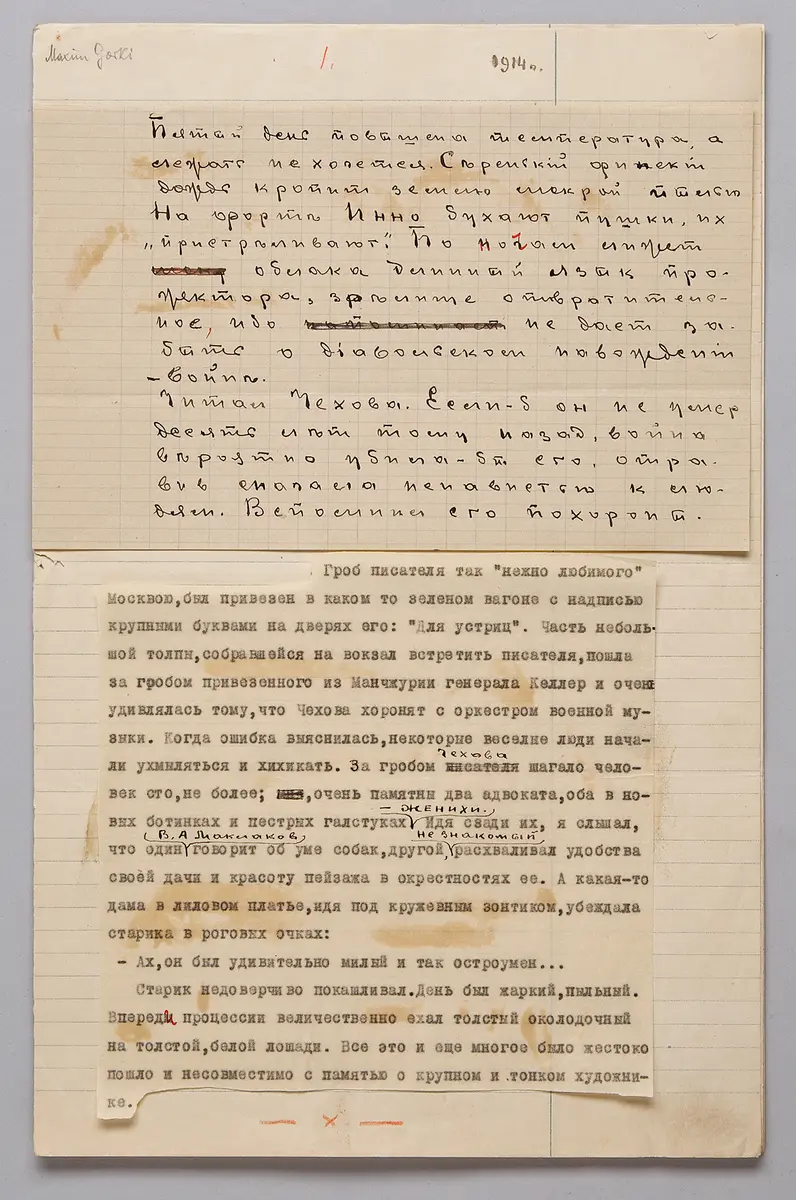 Maxim Gorki
1.
1914 г.
Пятый день повышена температура, а
лежать не хочется. Серенький финский
дождь кропит землю мокрой пылью.
На форте Инно бухают пушки, их
„пристреливают". По ночам лижет
облака длинный язык про-
жектора, зрелище отвратитель-
ное, ибо не дает за-
быть о дiавольском наваждении
– войне.
Читал Чехова. Если-б он не умер
десять лет тому назад, война
вероятно убила-бы его, отра-
вив сначала ненавистью к лю-
дям. Вспомнил его похороны.
Гроб писателя так "нежно любимого"
Москвою,был привезен в каком то зеленом вагоне с надписью
крупными буквами на дверях его: "Для устриц". Часть неболь-
шой толпы,собравшейся на вокзал встретить писателя,пошла
за гробом привезенного из Манчжурии генерала Келлер и очень
удивлялась тому,что Чехова хоронят с оркестром военной му-
зыки. Когда ошибка выяснилась,некоторые веселые люди нача-
Чехова
ли ухмыляться и хихикать. За гробом писателя шагало чело-
век сто,не более; ,очень памятны два адвоката,оба в но-
– женихи.
вых ботинках и пестрых галстуках Идя сзади их, я слышал,
В.А Маклаков, незнакомый
что один говорит об уме собак,другой, расхваливал удобства
своей дачи и красоту пейзажа в окрестностях ее. А какая-то
дама в лиловом платье,идя под кружевным зонтиком,убеждала
старика в роговых очках:
– Ах,он был удивительно милый и так остроумен...
Старик недоверчиво покашливал.День был жаркий,пыльный.
Впереди процессии величественно ехал толстый околодочный
на толстой,белой лошади. Все это и еще многое было жестоко
пошло и несовместимо с памятью о крупном и тонком художни-
ке.
– x –